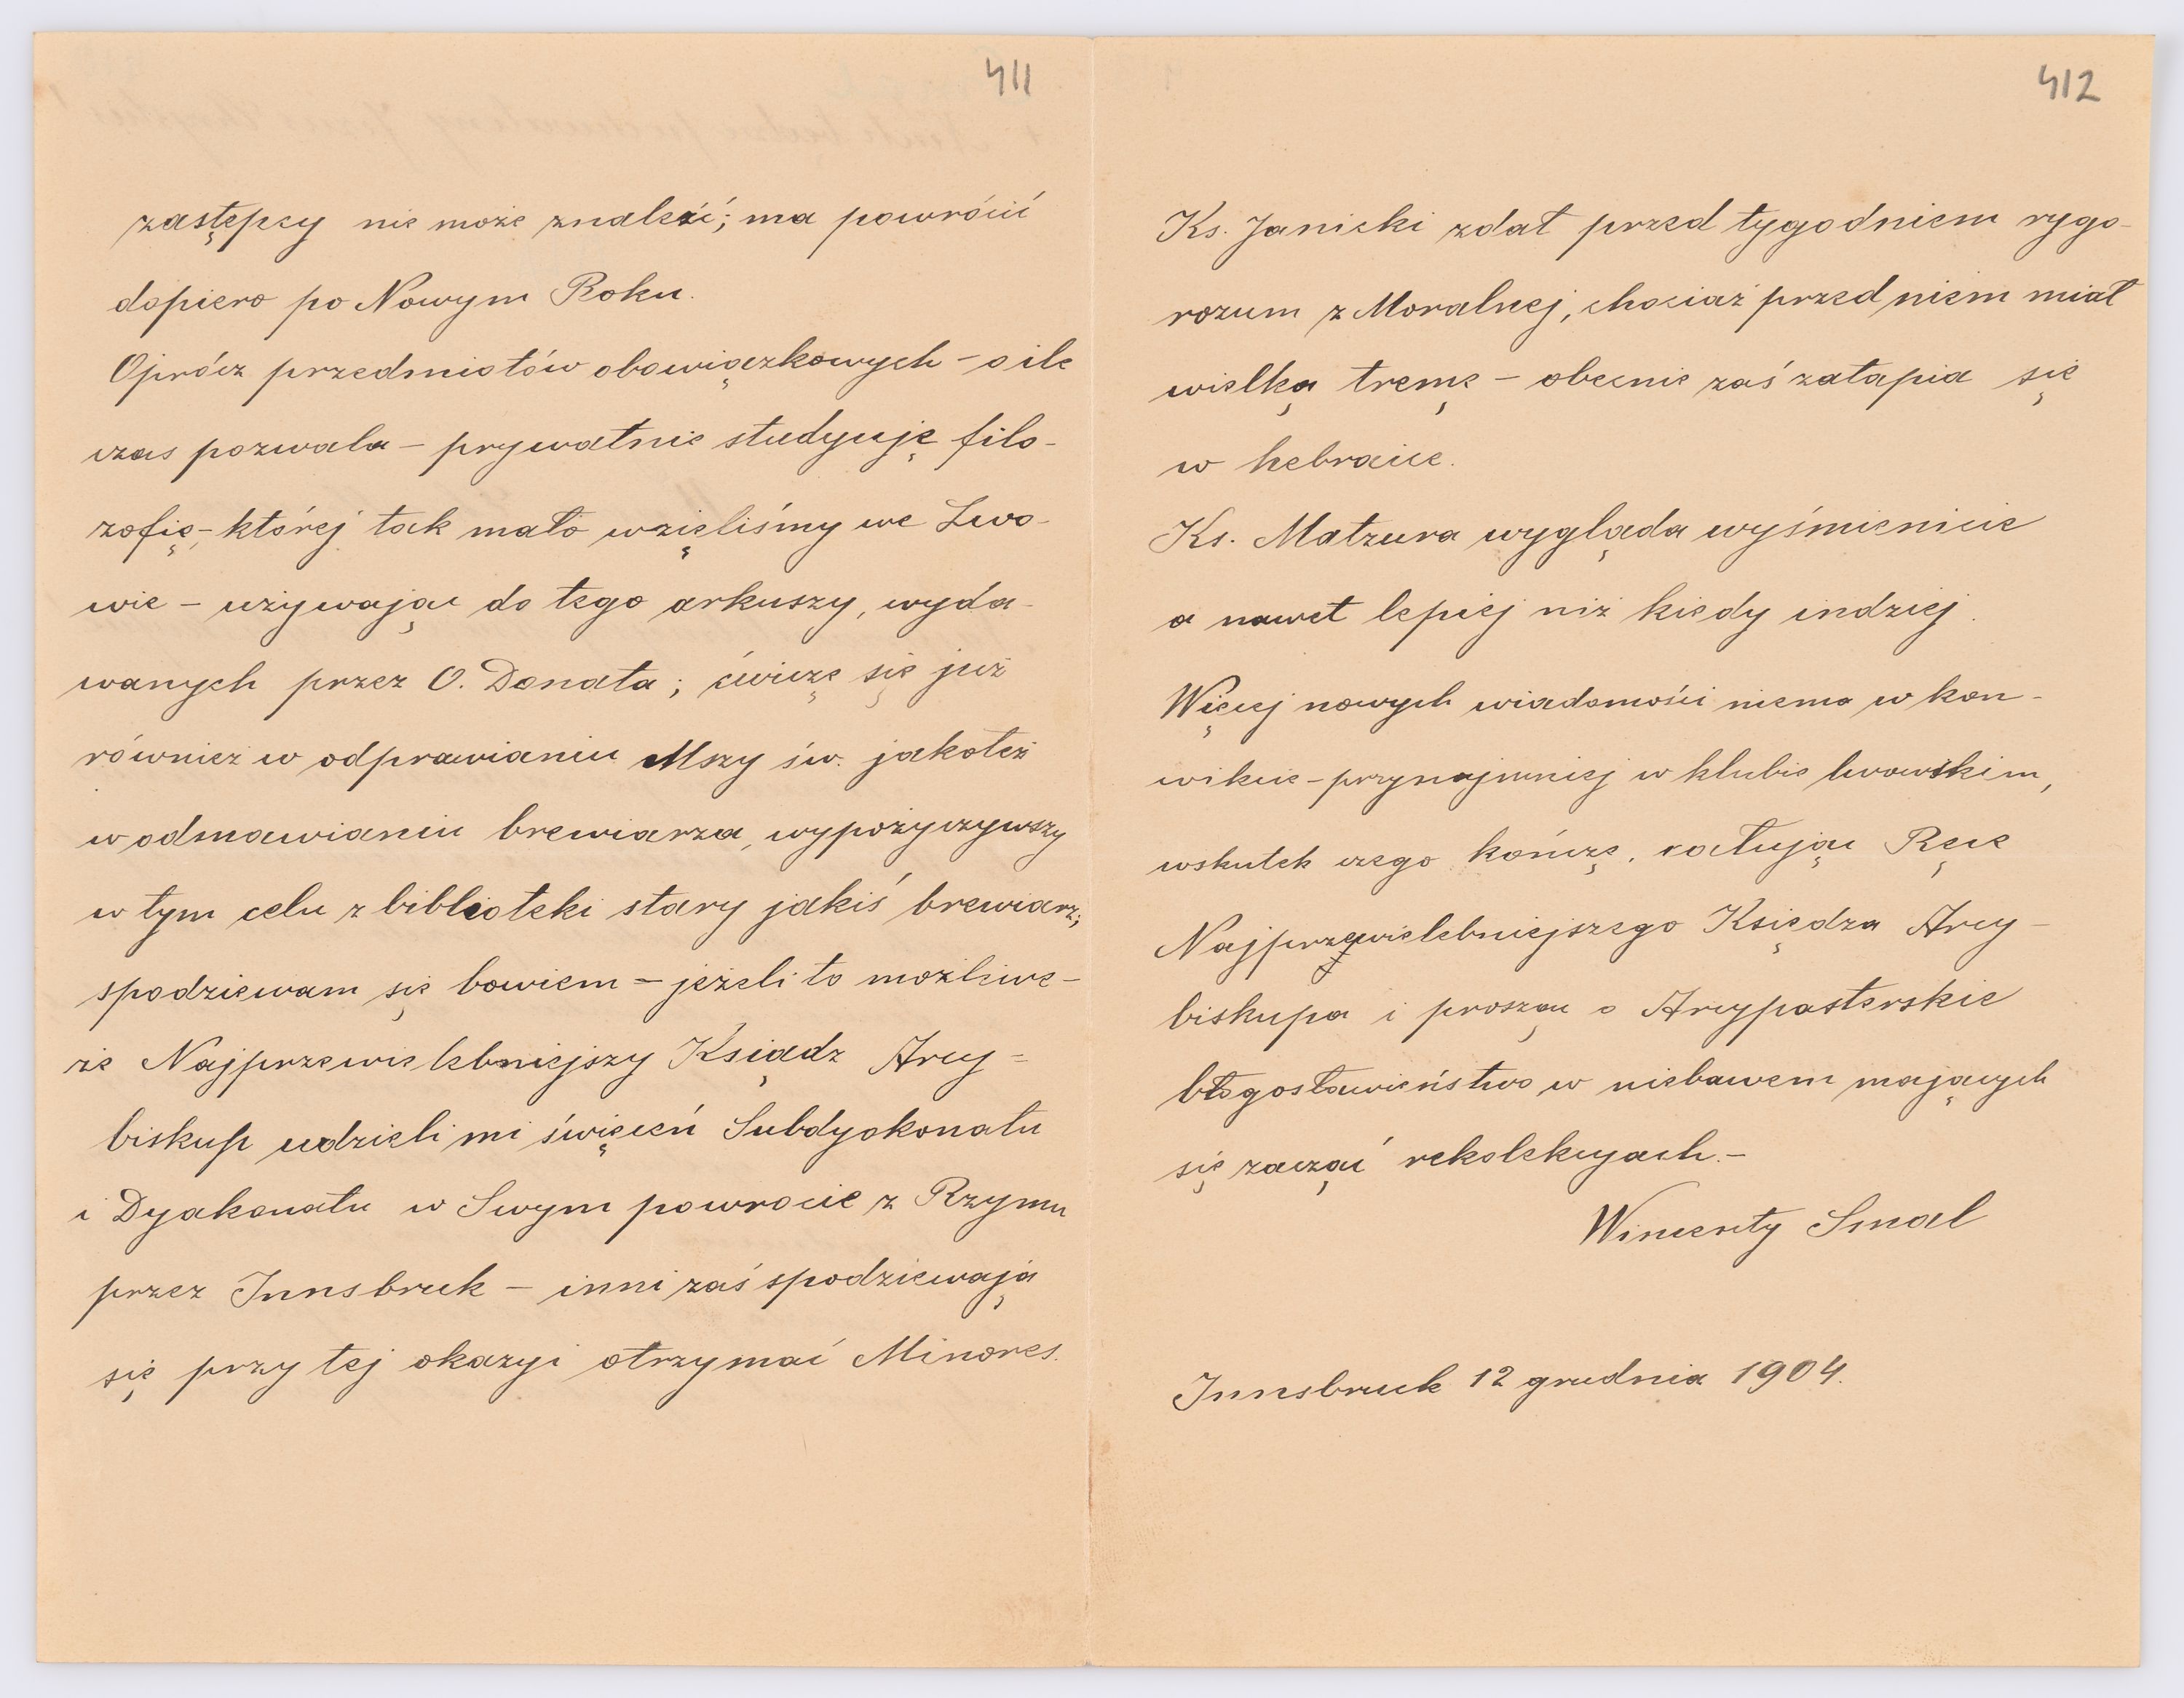 411
zastępcy nie może znaleźć; ma powrócić
dopiero po Nowym Roku.
Oprócz przedmiotów obowiązkowych – o ile
czas pozwala – prywatnie studyuję filo-
zofię, – której tak mało wzięliśmy we Lwo-
wie – używając do tego arkuszy, wyda-
wanych przez O. Donata; ćwiczę się już
również w odprawianiu Mszy św. jakoteż
w odmawianiu brewiarza, wypożyczywszy
w tym celu z biblioteki stary jakiś brewiarz;
spodziewam się bowiem – jeżeli to możliwe –
że Najprzewielebniejszy Ksiądz Arcy-
biskup udzieli mi święceń Subdyakonatu
i Dyakonatu w Swym powrocie z Rzymu
przez Innsbruk – inni zaś spodziewają
się przy tej okazyi otrzymać Minores.
412
Ks. Janicki zdał przed tygodniem rygo-
rozum z Moralnej, chociaż przed niem miał
wielką tremę – obecnie zaś zatapia się
w hebraice.
Ks. Matzura wygląda wyśmienicie
a nawet lepiej niż kiedy indziej.
Więcej nowych wiadomości niema w kon-
wikcie – przynajmniej w klubie lwowskim,
wskutek czego kończę, całując Ręce
Najprzewielebniejszego Księdza Arcy-
biskupa i prosząc o Arcypasterskie
błogosławieństwo w niebawem mających
się zacząć rekolekcyach. –
Wincenty Smal
Innsbruck 12 grudnia 1904.